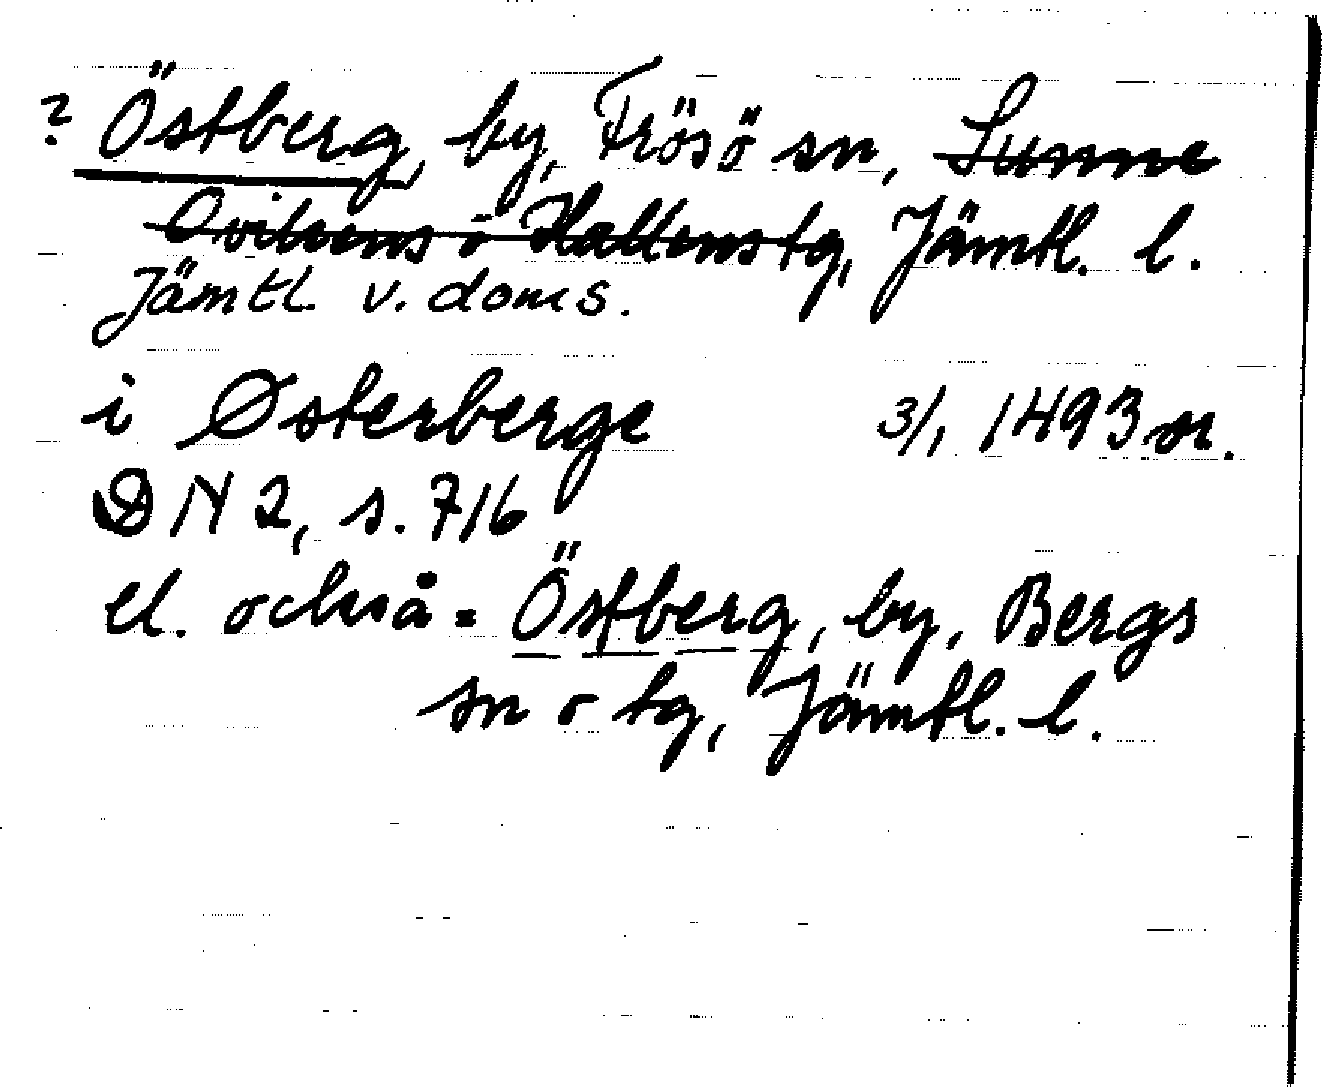 ? Östberg, by, Frösö sn, Sunne
Ovikens o Hallens tg, Jämtl. l.
Jämtl v. doms.
i Østerberge 3/1 1493 or.
DN 2, s. 716
el. också = Östberg, by, Bergs
sn o tg, Jämtl. l.